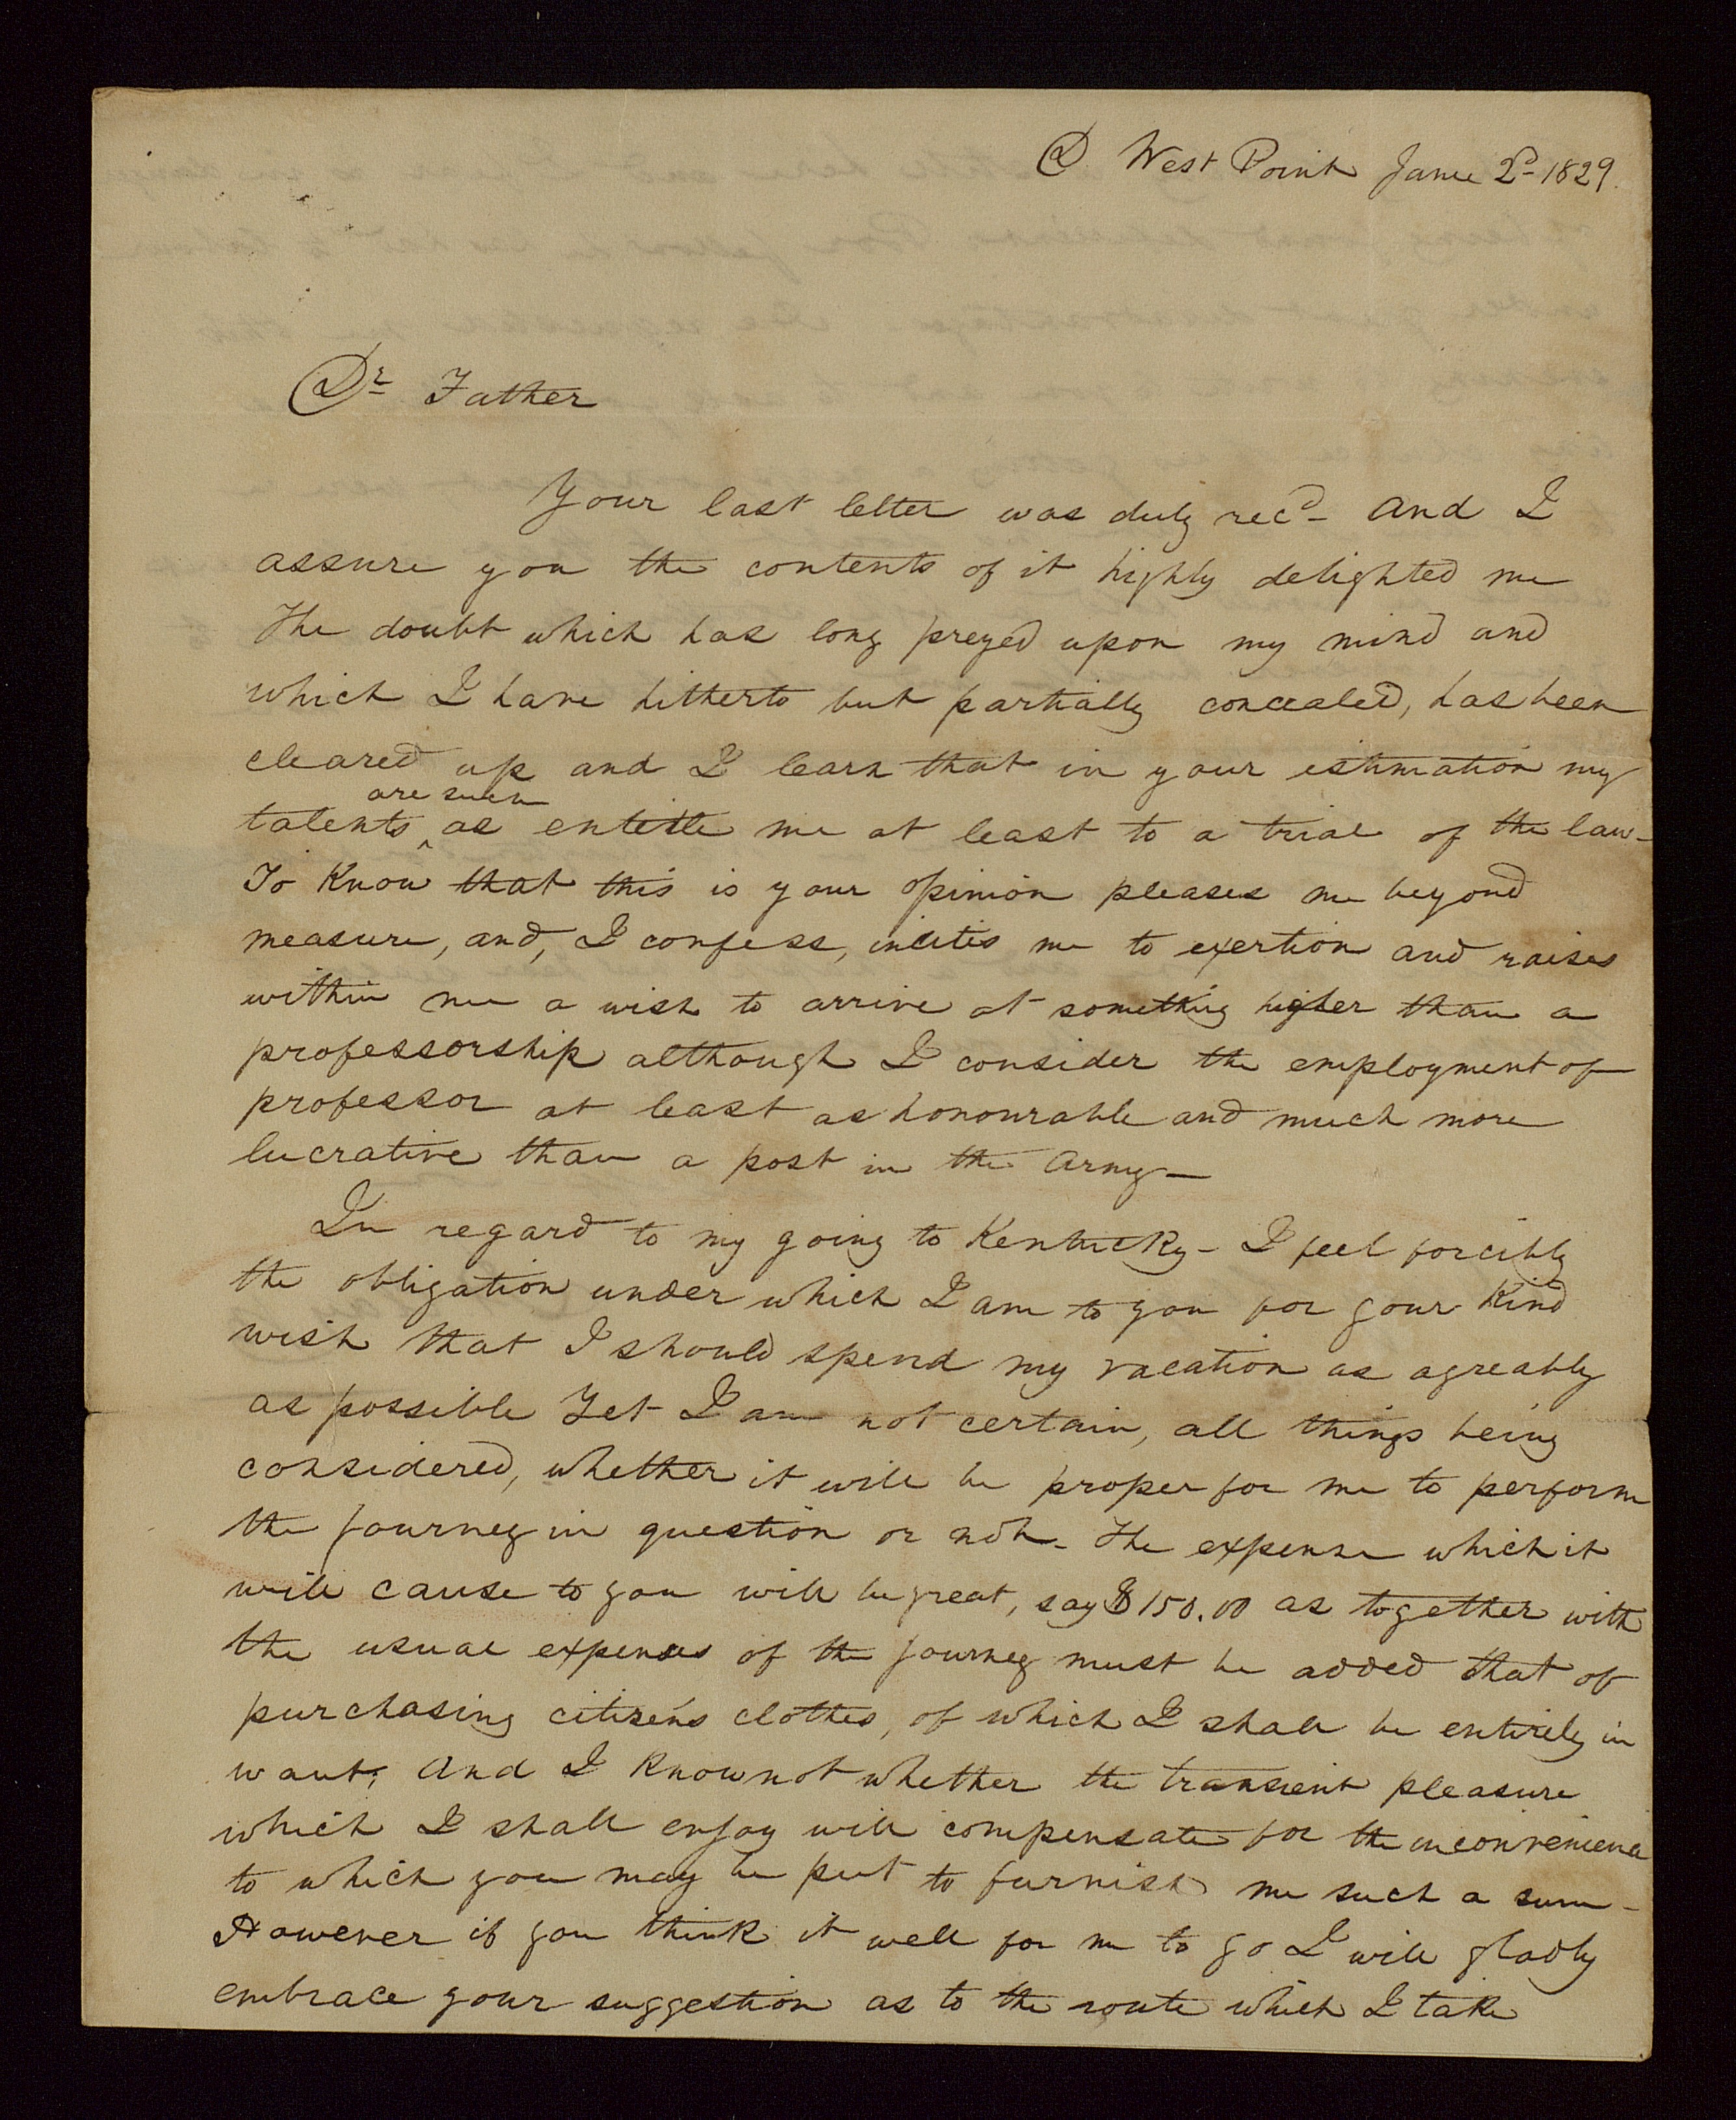 D West Point June 2d 1829.
Dr Father
Your last letter was duly recd - And I
assure you the contents of it highly delighted me
The doubt which has long preyed upon my mind and
which I have hitherto but partially concealed, has been
cleared up and I learn that in your estimation my
are such
talents ^ as entitle me at least to a trial of the law -
To Know that this is your opinion pleases me beyond
measure, and, I confess, incites me to exertion and raises
within me a wish to arrive at something higher than a
professorship although I consider the employment of
professor at least as honourable and much more
lucrative than a post in the Army -
In regard to my going to Kentucky - I feel forcibly
the obligation under which I am to you for your Kind
wish that I should spend my vacation as agreably
as possible Yet I am not certain, all things being
considered, whether it will be proper for me to perform
the journey in question or not - The expense which it
will cause to you will be great, say $150.00 as together with
the usual expenses of the journey must be added that of
purchasing citizen's clothes, of which I shall be entirely in
want; And I Know not whether the transient pleasure
which I shall enjoy will compensate for the inconvenience
to which you may be put to furnish me such a sum -
However if you think it well for me to go I will gladly
embrace your suggestion as to the route which I take